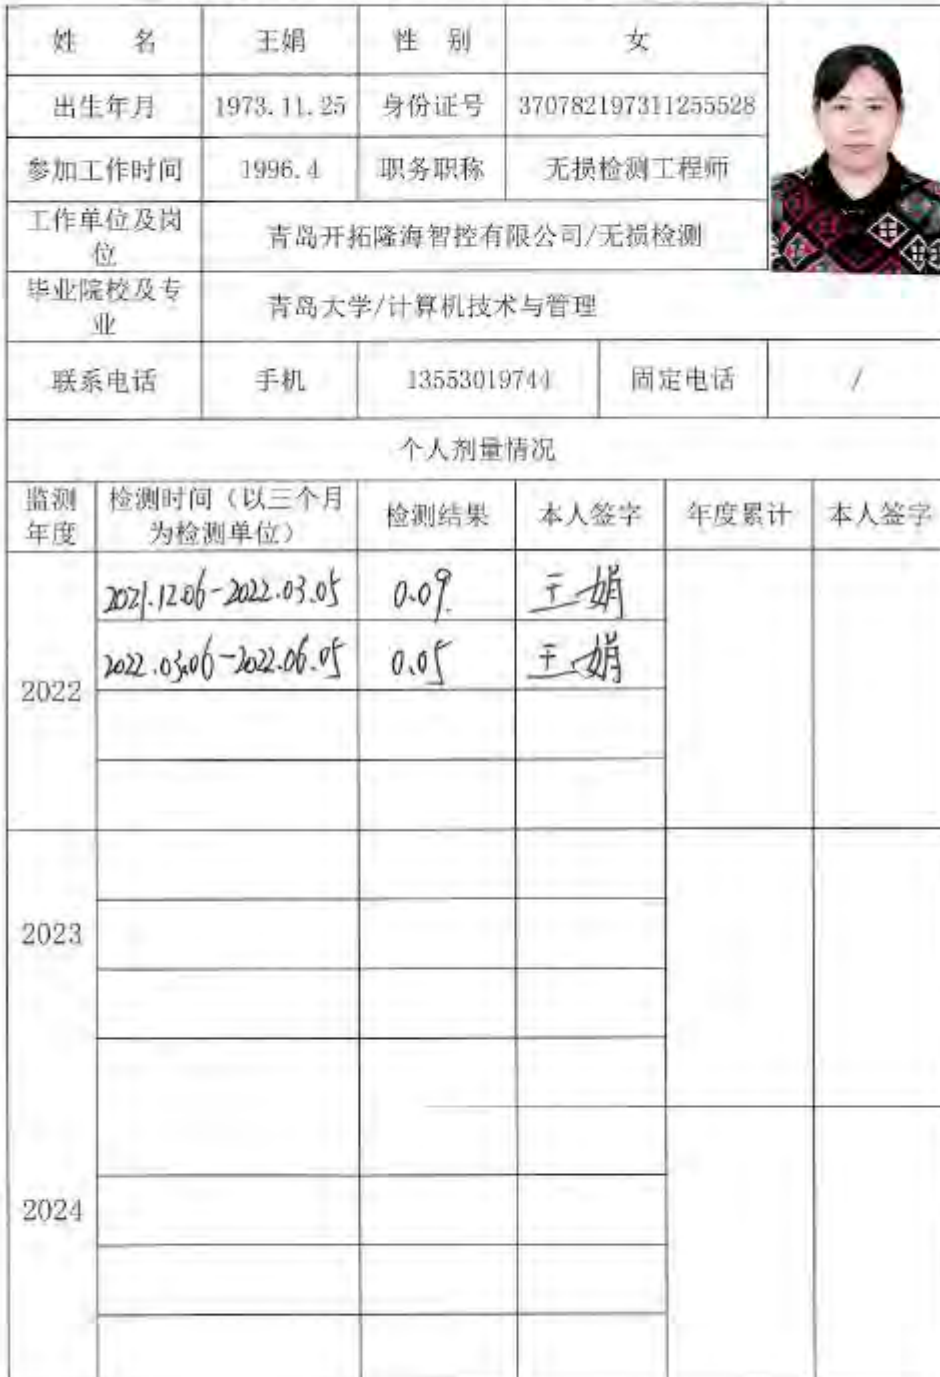 姓 名 王娟 性 别 女
出生年月 1973.11.25 身份证号 370782197311255528
参加工作时间 1996.4 职务职称 无损检测工程师
工作单位及岗
位 青岛开拓隆海智控有限公司/无损检测
毕业院校及专
业 青岛大学/计算机技术与管理
联系电话 手机 13553019744 固定电话 /
个人剂量情况
监测
年度 检测时间（以三个月
为检测单位） 检测结果 本人签字 年度累计 本人签字
2022
2021.12.06-2022.03.05 0.09. 王娟
2022.03.06-2022.06.05 0.05 王娟
2023
2024